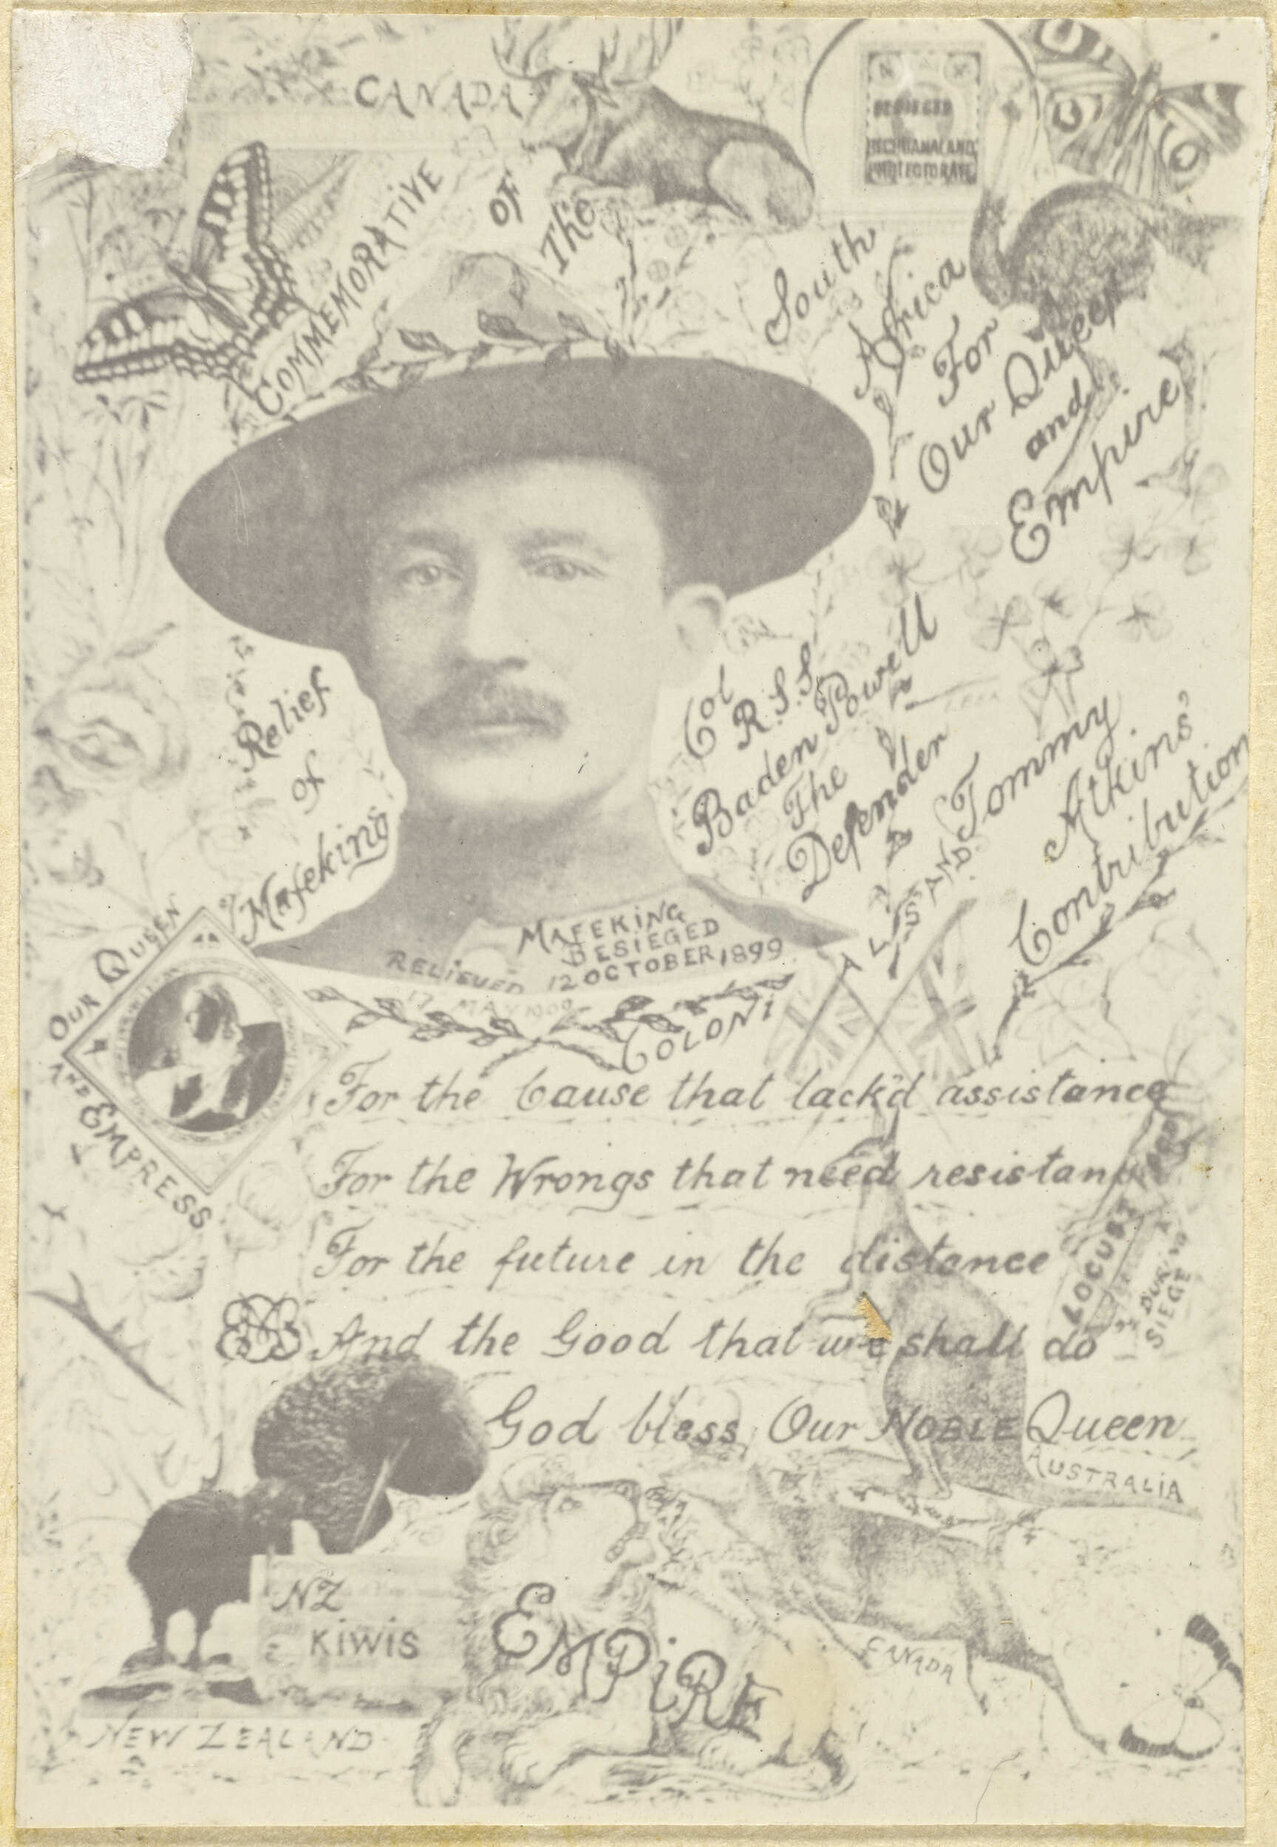 CANADA
COMMEMORATIVE
OF
The
Relief
of
Mafeking
BESIEGED
BECHUANALAND
PROTECTORATE
South
Africa
For
Our Queen
and
Empire
Col
R.S.S.
Baden Powell
The
Defender
Tommy
Atkins'
Contribution
MAFEKING
BESIEGED
12 OCTOBER 1899
RELIEVED
17 MAY 1900
COLONI
ALS AND
OUR QUEEN
AND EMPRESS
For the Cause that lack'd assistance
For the Wrongs that need resistanc
For the future in the distance
And the Good that we shall do
God bless Our NOBLE Queen
LOCUST
DURING
SIEGE
AUSTRALIA
NZ
KIWIS
NEW ZEALAND
EMPIRE
CANADA